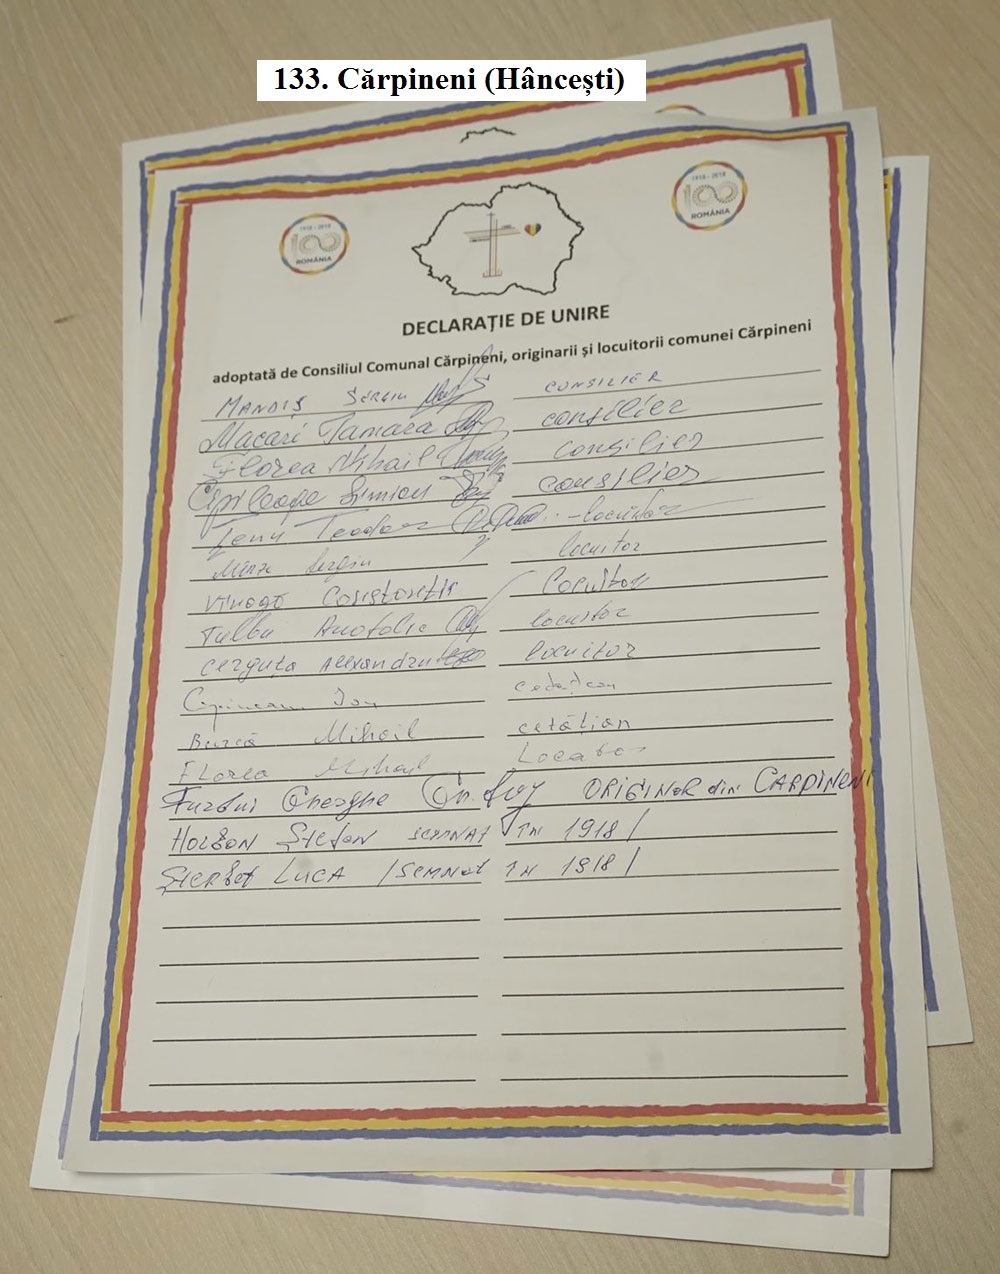 133. Cărpineni (Hâncești)
1918 - 2018
100
ROMÂNIA
1918 - 2018
100
ROMÂNIA
DECLARAȚIE DE UNIRE
adoptată de Consiliul Comunal Cărpineni, originarii și locuitorii comunei Cărpineni
MANDIȘ SERGIU CONSILIER
Macari Tamara consilier
Florea Mihail consilier
Simion consilier
Teodor locuitor
Sergiu locuitor
locuitor
Tulbu Anatolie locuitor
Cerguța Alexandru locuitor
Ion cetățean
Burcă Mihail cetățian
Florea Mihail
Gheorghe ORIGINOR din CARPINENI
HOLBON Ștefon SEMNAT ÎN 1918 /
LUCA / SEMNAT IN 1918 /